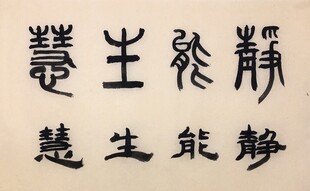 靜能生慧
靜能生慧